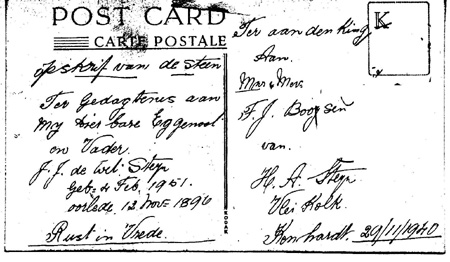 POST CARD
CARTE POSTALE
opskrif van de steen
Ter Gedagtenis aan
my dierbare Eggenoot
en Vader.
J. J. de Wet Steyn
Geb: 4 Feb, 1851.
oorlede, 12 Nov= 1896
Rust in Vrede.
K
Ter aandenking
Aan.
Mnr & Mevr
F. J. Booysen
van.
H. A. Steyn
Vlei Kolk.
29/11/1940